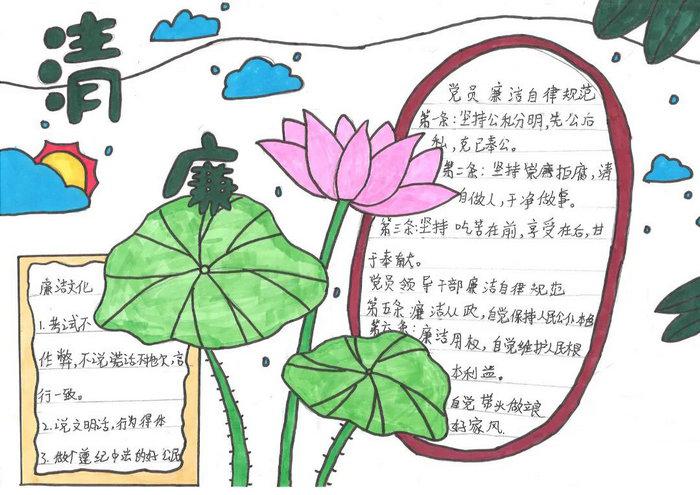 清
廉
廉洁文化
1.考试不
作弊,不说谎话,言
行一致。
2.说文明话,行为得体
3.做个遵纪守法的好公民
党员 廉洁自律规范
第一条:坚持公私分明,先公后
私,克己奉公。
第二条:坚持崇廉拒腐,清
白做人,干净做事。
第三条:坚持 吃苦在前,享受在后,甘
于奉献。
党员领导干部廉洁自律规范
第五条:廉洁从政,自觉保持人民公仆本色
第六条:廉洁用权,自觉维护人民根
本利益。
自觉 带头做良
好家风